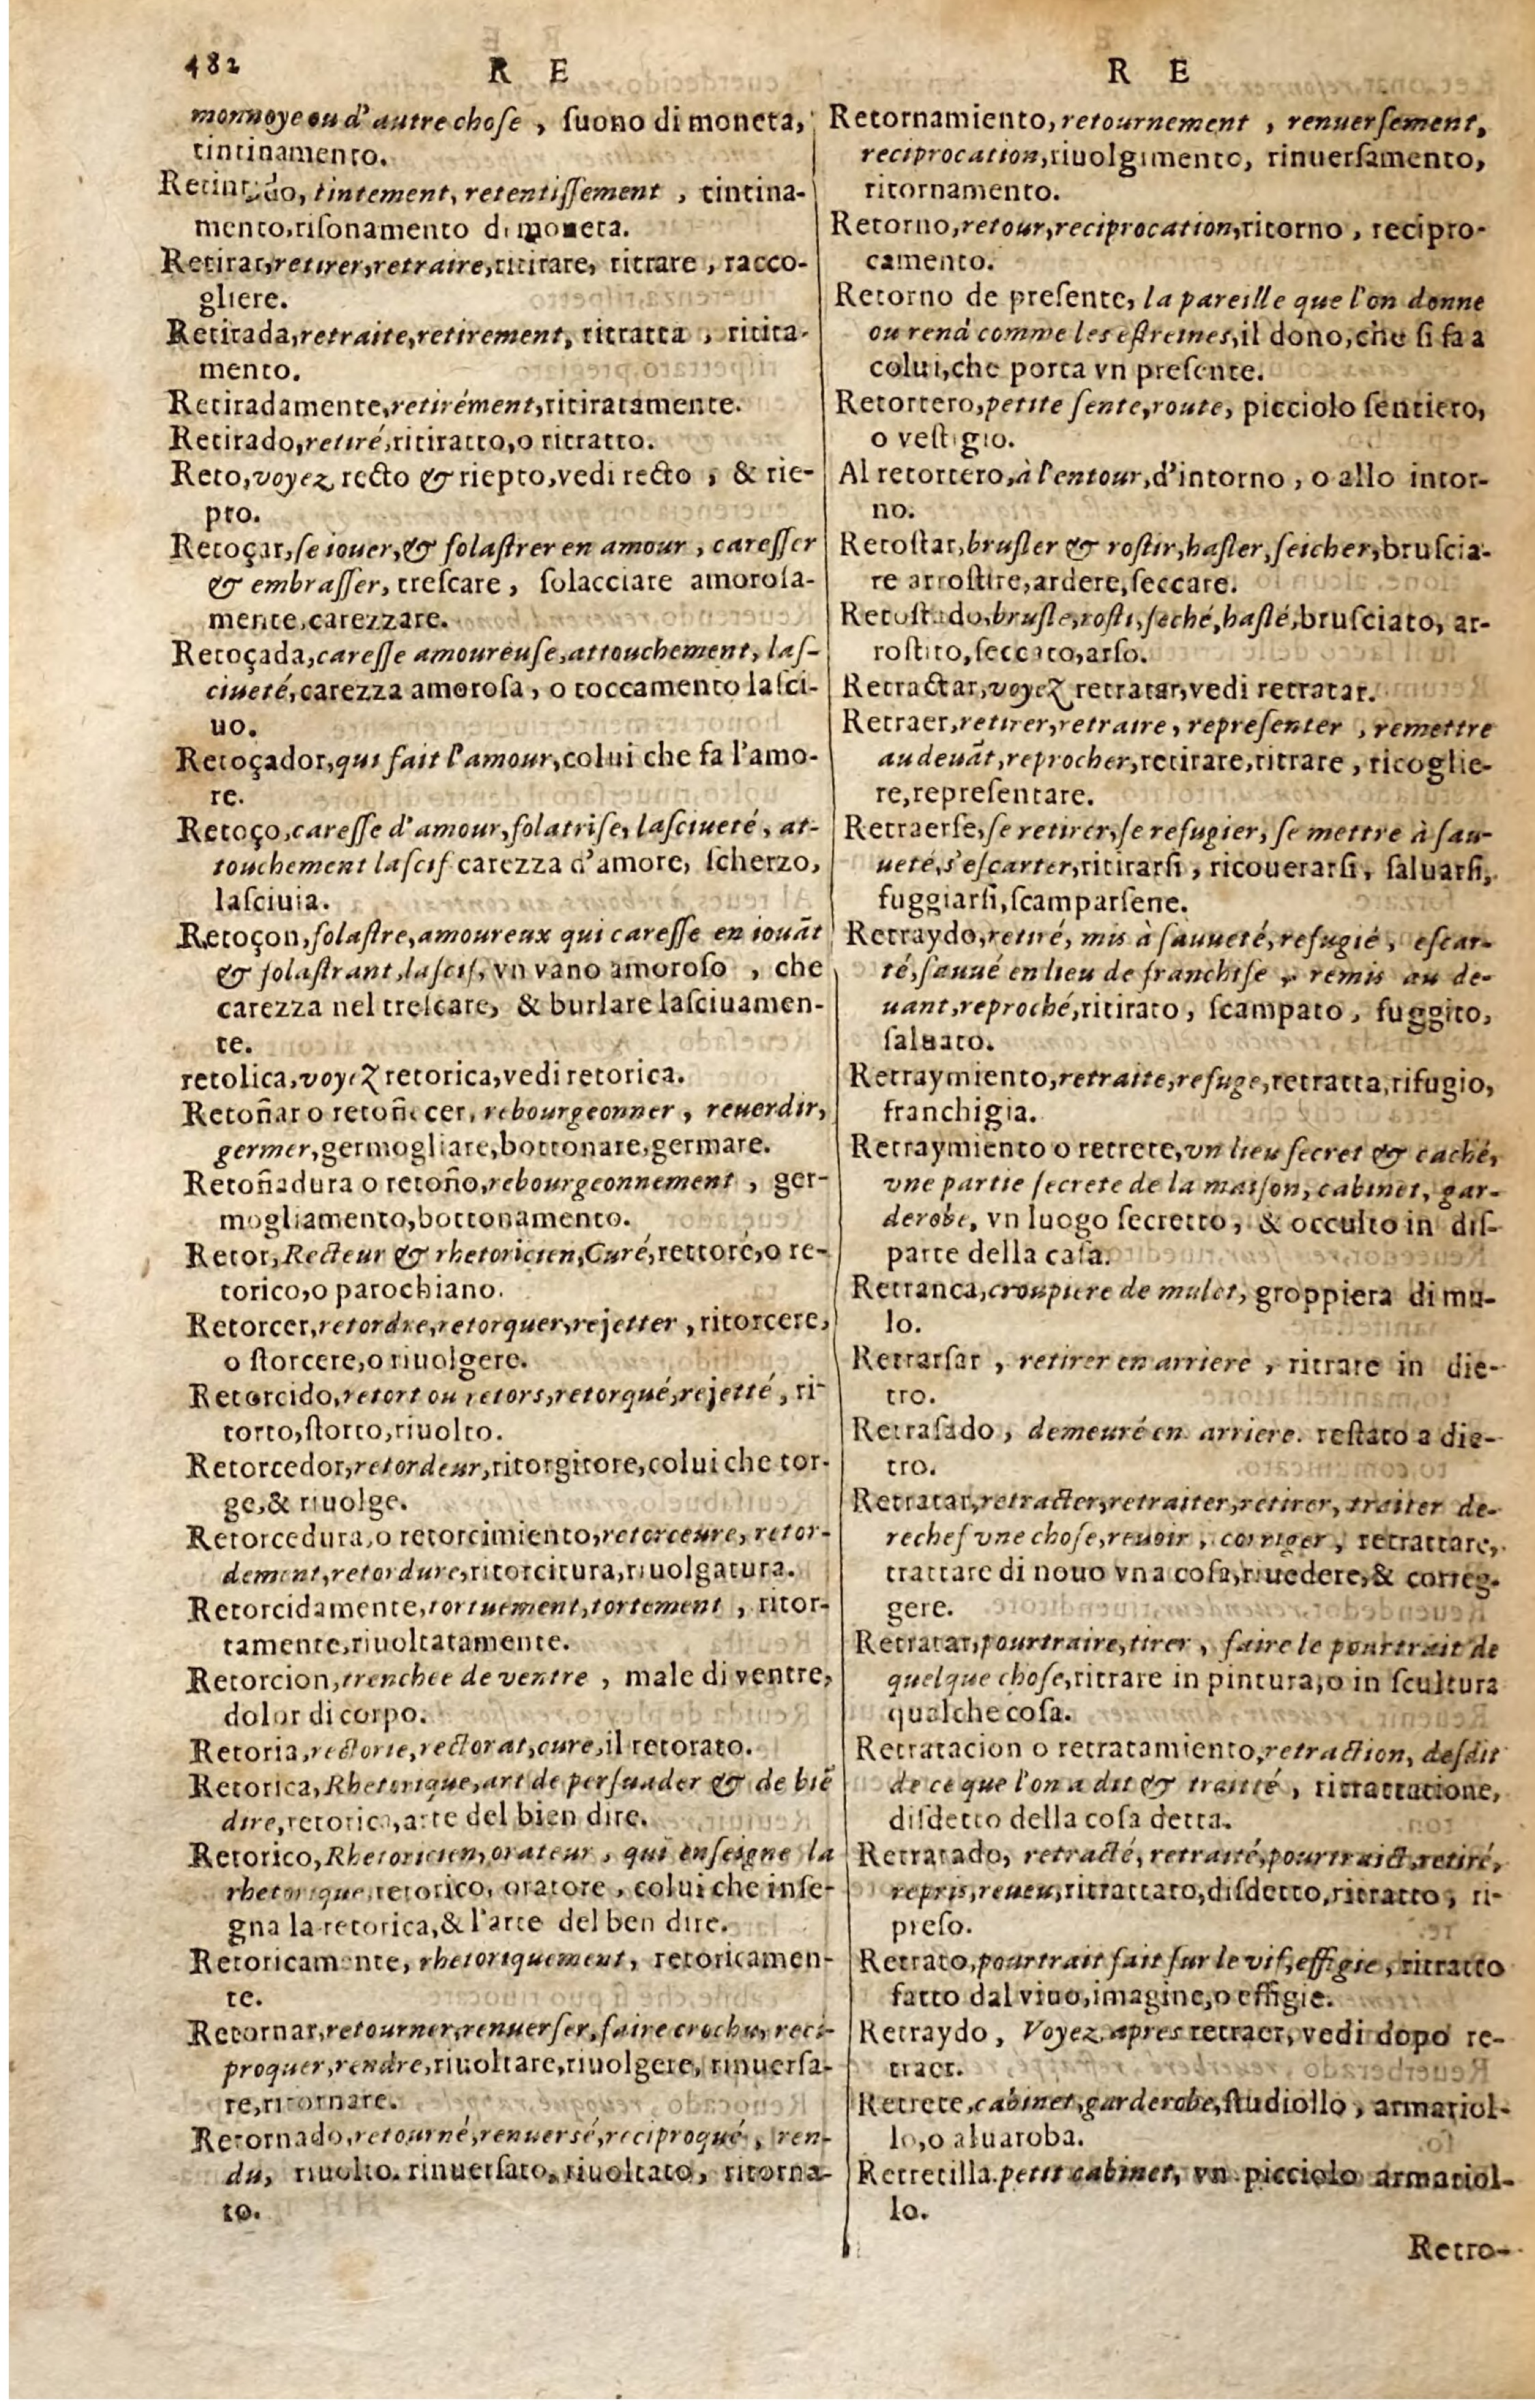 482
R E
R E
monnoye ou d'autre chose, suono di moneta,
tintinamento.
tintement, retentissement, tintina-
mento, risonamento di moneta.
Retirar, retirer, retraire, ritirare, ritrare, racco-
gliere.
Retirada, retraite, retirement, ritratta, ritira-
mento.
Retiradamente, retirément, ritiratamente.
Retirado, retiré, ritiratto, o ritratto.
Reto, voyez recto & riepto, vedi recto, & rie-
pto.
Retoçar, se iouer, & folastrer en amour, caresser
& embrasser, trescare, solacciare amorosa-
mente, carezzare.
Retoçada, caresse amoureuse, attouchement, las-
ciueté, carezza amorosa, o toccamento lasci-
uo.
Retoçador, qui fait l'amour, colui che fa l'amo-
re.
Retoço, caresse d'amour, folatrise, lasciueté, at-
touchement lascif carezza d'amore, scherzo,
lasciuia.
Retoçon, folastre, amoureux qui caresse en iouãt
& folastrant, lascif, vn vano amoroso, che
carezza nel trescare, & burlare lasciuamen-
te.
retolica, voyez retorica, vedi retorica.
Retoñar o retoñecer, rebourgeonner, reuerdir,
germer, germogliare, bottonare, germare.
Retoñadura o retoño, rebourgeonnement, ger-
mogliamento, bottonamento.
Retor, Recteur & rhetoricien, Curé, rettore, o re-
torico, o parochiano.
Retorcer, retordre, retorquer, rejetter, ritorcere,
o storcere, o riuolgere.
Retorcido, retort ou retors, retorqué, rejetté, ri-
torto, storto, riuolto.
Retorcedor, retordeur, ritorgitore, colui che tor-
ge, & riuolge.
Retorcedura, o retorcimiento, retorceure, retor-
dement, retordure, ritorcitura, riuolgatura.
Retorcidamente, tortuement, tortement, ritor-
tamente, riuoltatamente.
Retorcion, trenchee de ventre, male di ventre,
dolor di corpo.
Retoria, rectorie, rectorat, cure, il retorato.
Retorica, Rhetorique, art de persuader & de biẽ
dire, retorica, arte del bien dire.
Retorico, Rhetoricien, orateur, qui enseigne la
rhetorique, retorico, oratore, colui che inse-
gna la retorica, & l'arte del ben dire.
Retoricamente, rhetoriquement, retoricamen-
te.
Retornar, retourner, renuerser, faire crochu, reci-
proquer, rendre, riuoltare, riuolgere, rinuersa-
re, ritornare.
Retornado, retourné, renuersé, reciproqué, ren-
du, riuolto. rinuersato, riuoltato, ritorna-
to.
Retornamiento, retournement, renuersement,
reciprocation, riuolgimento, rinuersamento,
ritornamento.
Retorno, retour, reciprocation, ritorno, recipro-
camento.
Retorno de presente, la pareille que l'on donne
ou rend comme les estreines, il dono, che si fa a
colui, che porta vn presente.
Retortero, petite sente, route, picciolo sentiero,
o vestigio.
Al retortero, à l'entour, d'intorno, o allo intor-
no.
Retostar, brusler & rostir, hasler, seicher, bruscia-
re arrostire, ardere, seccare.
Retostado, brusle, rosti, seché, haslé, brusciato, ar-
rostito, seccato, arso.
Retractar, voyez retratar, vedi retratar.
Retraer, retirer, retraire, representer, remettre
au deuãt, reprocher, retirare, ritrare, ricoglie-
re, representare.
Retraerse, se retirer, se refugier, se mettre à sau-
ueté, s'escarter, ritirarsi, ricouerarsi, saluarsi,
fuggiarsi, scamparsene.
Retraydo, retiré, mis à sauueté, refugié, escar-
té, sauué en lieu de franchise, remis au de-
uant, reproché, ritirato, scampato, fuggito,
saluato.
Retraymiento, retraite, refuge, retratta, rifugio,
franchigia.
Retraymiento o retrete, vn lieu secret & caché,
vne partie secrete de la maison, cabinet, gar-
derobe, vn luogo secretto, & occulto in dis-
parte della casa.
Retranca, croupiere de mulet, groppiera di mu-
lo.
Retrarsar, retirer en arriere, ritrare in die-
tro.
Retrasado, demeuré en arriere. restato a die-
tro.
Retratar, retracter, retraiter, retirer, traiter de-
rechef vne chose, reuoir, corriger, retrattare,
trattare di nouo vna cosa, riuedere, & correg-
gere.
Retratar, pourtraire, tirer, faire le pourtrait de
quelque chose, ritrare in pintura, o in scultura
qualche cosa.
Retratacion o retratamiento, retraction, desdit
de ce que l'on a dit & traitté, ritrattatione,
disdetto della cosa detta.
Retratado, retracté, retraité, pourtraict, retiré,
repris, reueu, ritrattato, disdetto, ritratto, ri-
preso.
Retrato, pourtrait fait sur le vif, effigie, ritratto
fatto dal viuo, imagine, o effigie.
Retraydo, Voyez apres retraer, vedi dopo re-
traer.
Retrete, cabinet, garderobe, studiollo, armariol-
lo, o aluaroba.
Retretilla. petit cabinet, vn picciolo armariol-
lo.
Retro-